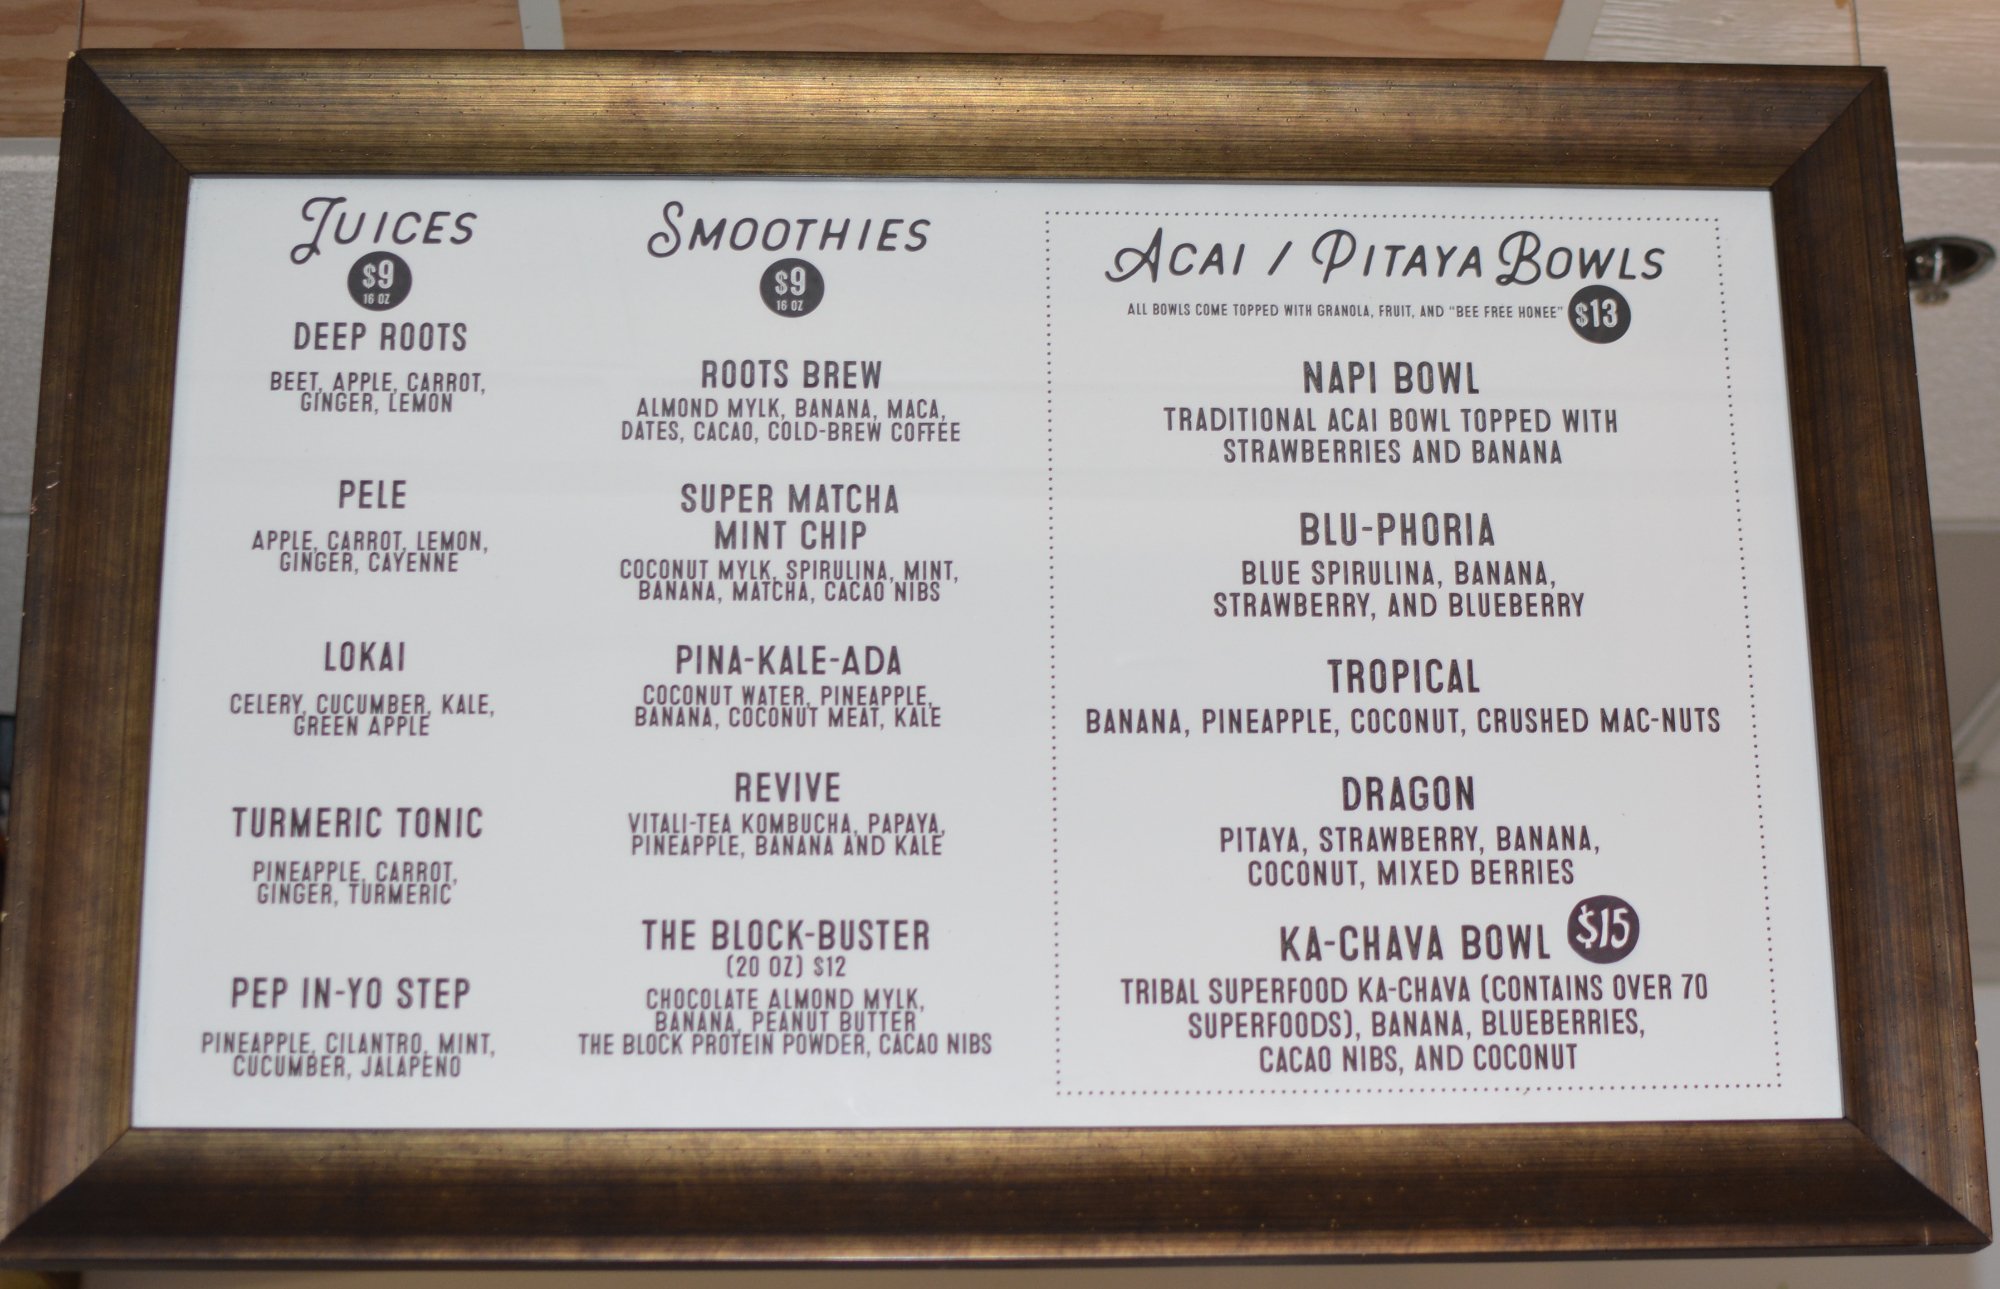 JUICES
$9
16 OZ
DEEP ROOTS
BEET, APPLE, CARROT,
GINGER, LEMON
PELE
APPLE, CARROT, LEMON,
GINGER, CAYENNE
LOKAI
CELERY, CUCUMBER, KALE,
GREEN APPLE
TURMERIC TONIC
PINEAPPLE, CARROT,
GINGER, TURMERIC
PEP IN-YO STEP
PINEAPPLE, CILANTRO, MINT,
CUCUMBER, JALAPENO
SMOOTHIES
$9
16 OZ
ROOTS BREW
ALMOND MYLK, BANANA, MACA,
DATES, CACAO, COLD-BREW COFFEE
SUPER MATCHA
MINT CHIP
COCONUT MYLK, SPIRULINA, MINT,
BANANA, MATCHA, CACAO NIBS
PINA-KALE-ADA
COCONUT WATER, PINEAPPLE,
BANANA, COCONUT MEAT, KALE
REVIVE
VITALI-TEA KOMBUCHA, PAPAYA,
PINEAPPLE, BANANA AND KALE
THE BLOCK-BUSTER
(20 OZ) $12
CHOCOLATE ALMOND MYLK,
BANANA, PEANUT BUTTER
THE BLOCK PROTEIN POWDER, CACAO NIBS
ACAI / PITAYA BOWLS
ALL BOWLS COME TOPPED WITH GRANOLA, FRUIT, AND "BEE FREE HONEE" $13
NAPI BOWL
TRADITIONAL ACAI BOWL TOPPED WITH
STRAWBERRIES AND BANANA
BLU-PHORIA
BLUE SPIRULINA, BANANA,
STRAWBERRY, AND BLUEBERRY
TROPICAL
BANANA, PINEAPPLE, COCONUT, CRUSHED MAC-NUTS
DRAGON
PITAYA, STRAWBERRY, BANANA,
COCONUT, MIXED BERRIES
KA-CHAVA BOWL $15
TRIBAL SUPERFOOD KA-CHAVA (CONTAINS OVER 70
SUPERFOODS), BANANA, BLUEBERRIES,
CACAO NIBS, AND COCONUT